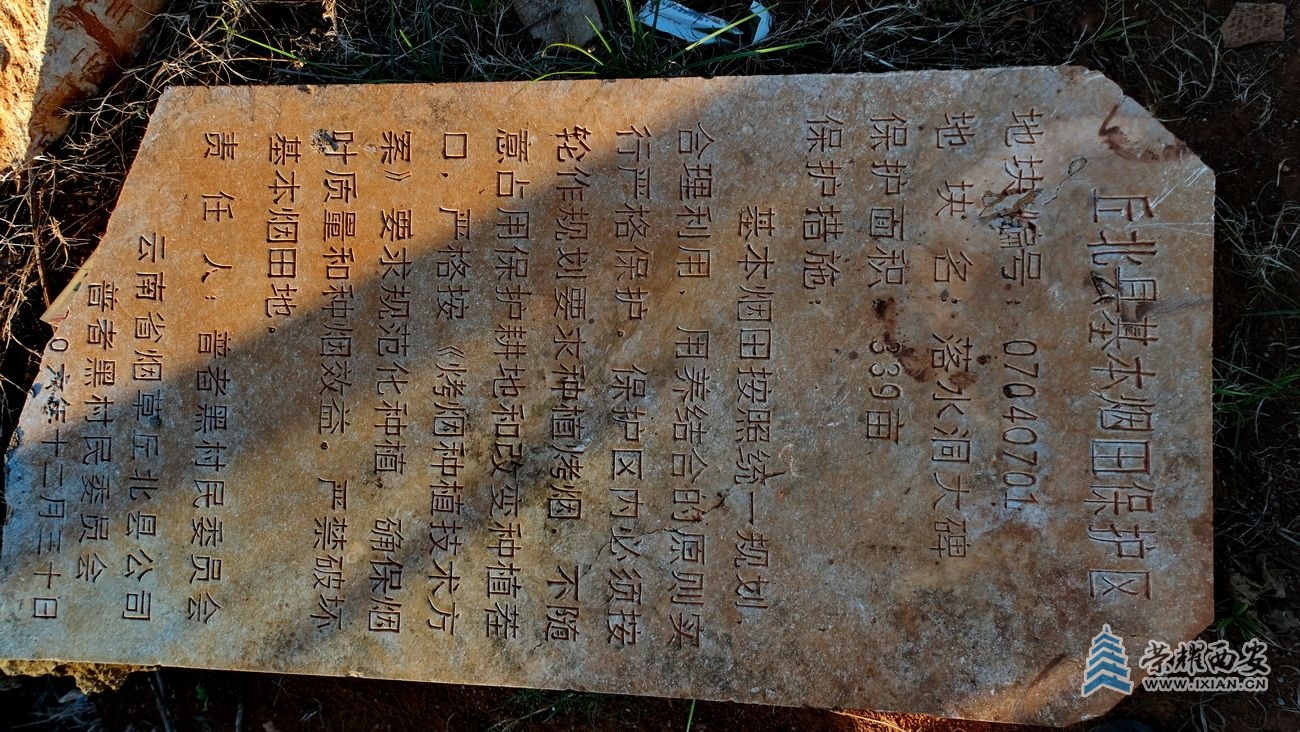 丘北县基本烟田保护区
地块编号：07040701
地块名：落水洞大碑
保护面积 339亩
保护措施：
基本烟田按照统一规划、
合理利用、用养结合的原则实
行严格保护。保护区内必须按
轮作规划要求种植烤烟 不随
意占用保护耕地和改变种植茬
口，严格按《烤烟种植技术方
案》要求规范化种植，确保烟
叶质量和种烟效益。严禁破坏
基本烟田地。
责任人：普者黑村民委员会
云南省烟草丘北县公司
普者黑村民委员会
〇六年十二月三十日
荣耀西安
WWW.IXIAN.CN